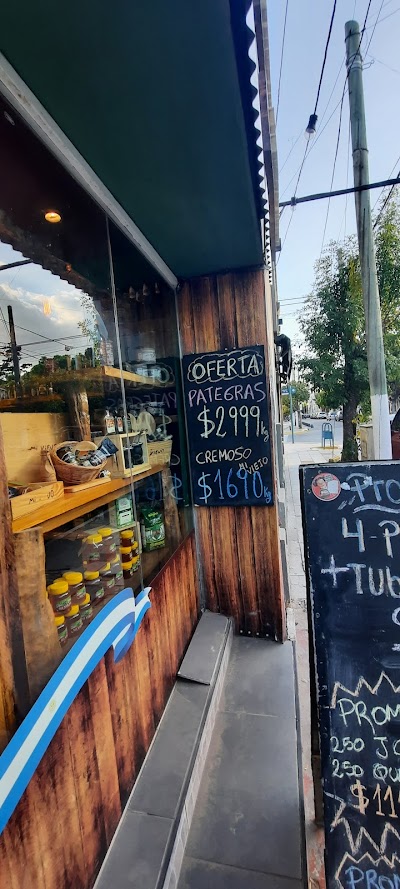 OFERTA
PATEGRAS
$2999 kg
CREMOSO
MI VIEJO
$1690 kg
4-P
+TUB
PROM
250 JO
250 QU
$11
PROM